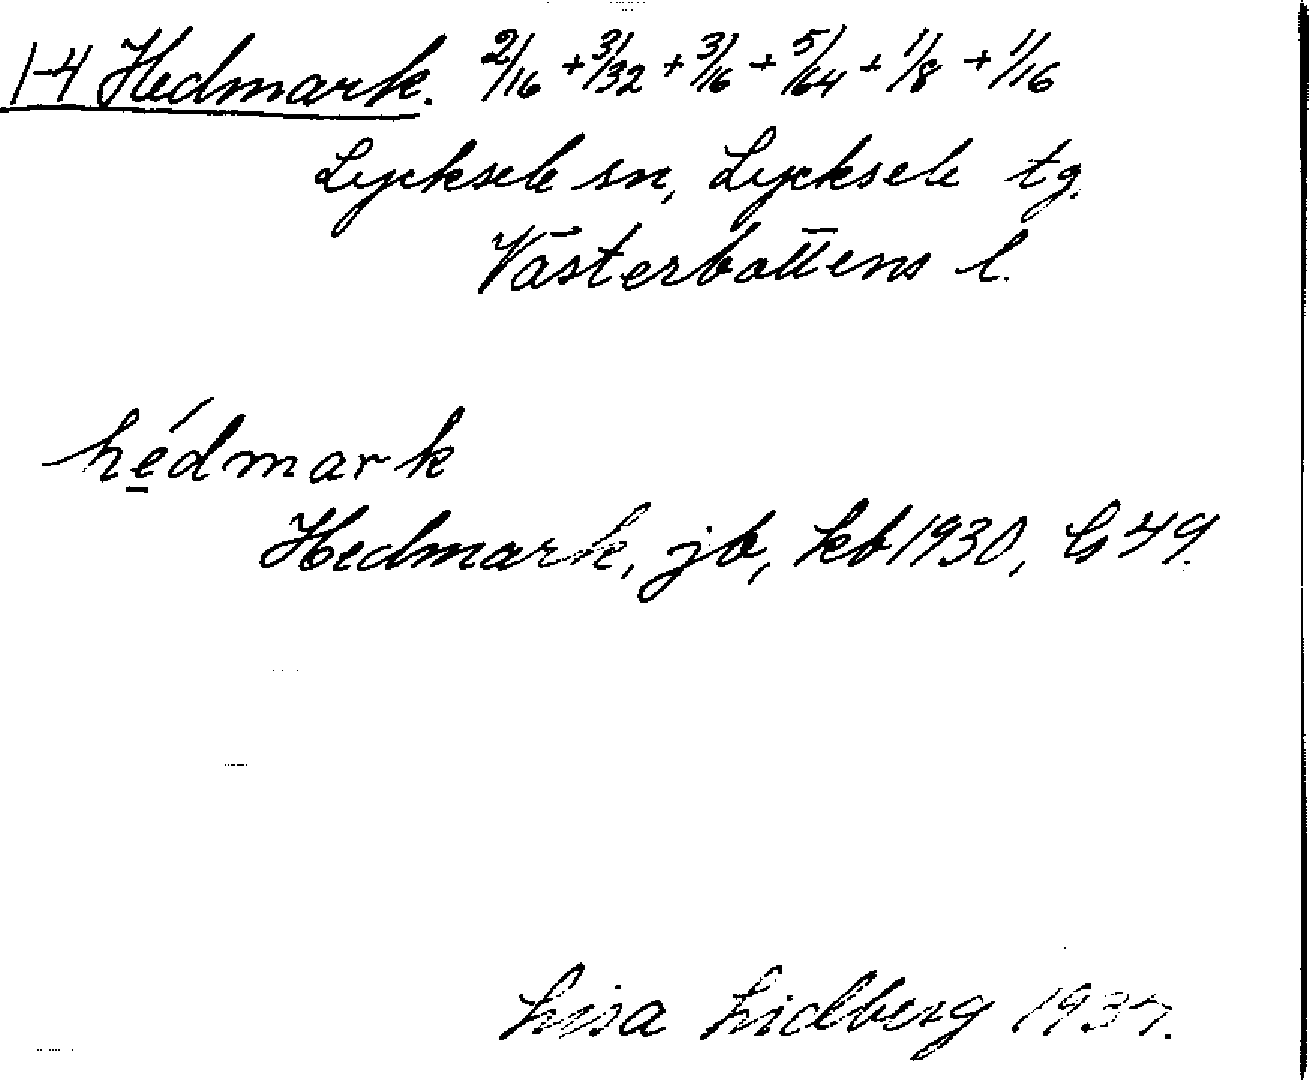 1-4 Hedmark. 2/16 + 3/32 + 3/16 + 5/64 + 1/8 + 1/16
Lycksele sn, Lycksele tg.
Västerbottens l.
hé̱dmark
Hedmark, jb, kb 1930, G 49.
Lisa Lidberg 1937.